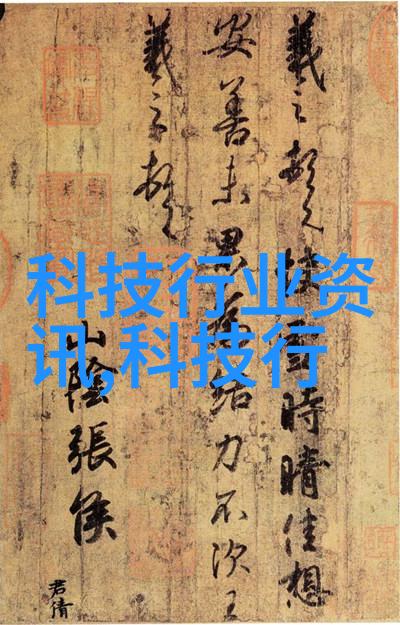 科技行业资
讯,科技行
羲之頓首快雪時晴佳想
安善未果為結力不次王
羲之頓首
山陰張侯
君倩